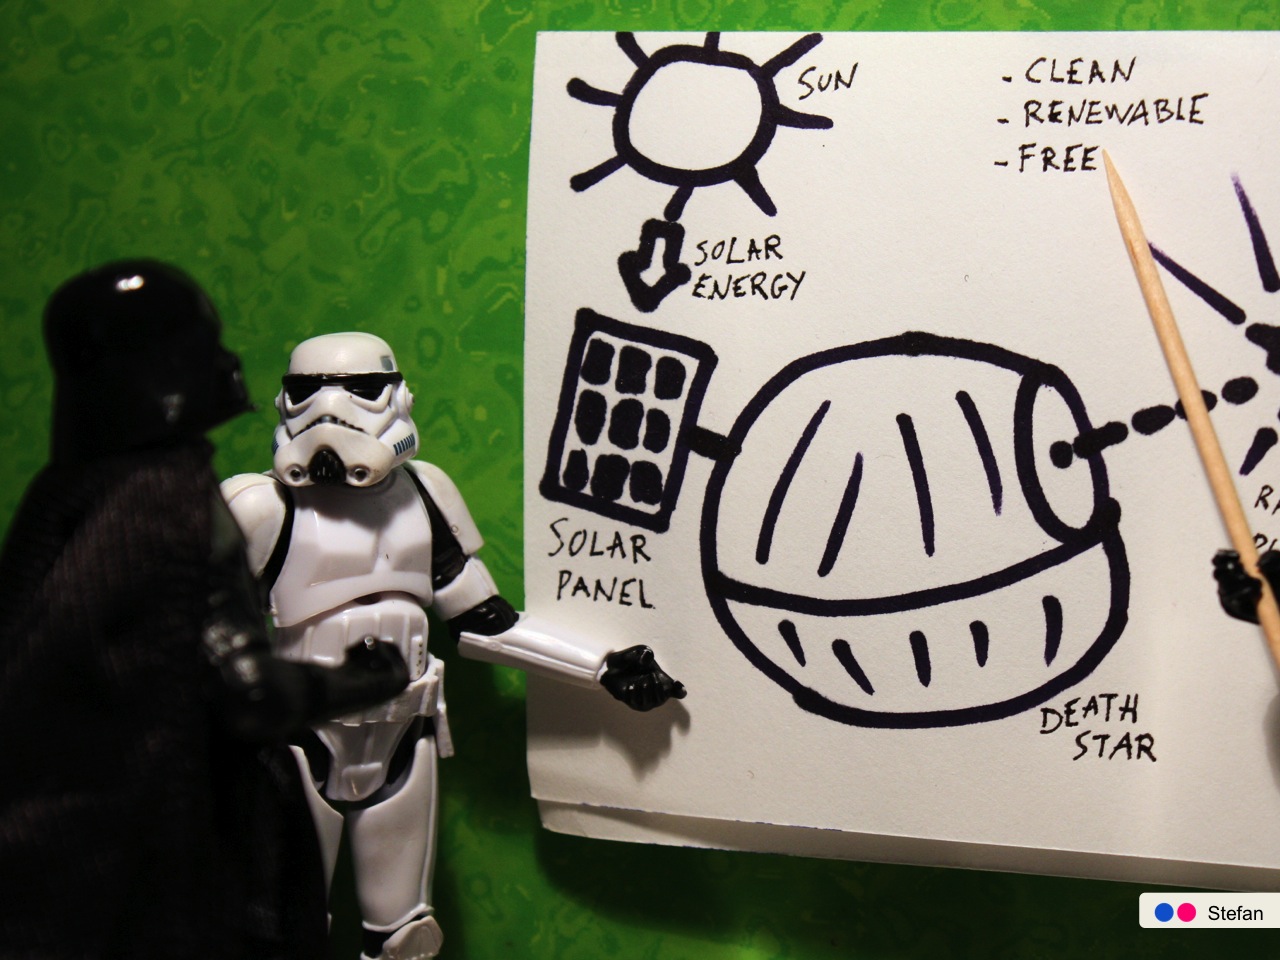 SUN
- CLEAN
- RENEWABLE
- FREE
SOLAR
ENERGY
SOLAR
PANEL
DEATH
STAR
Stefan